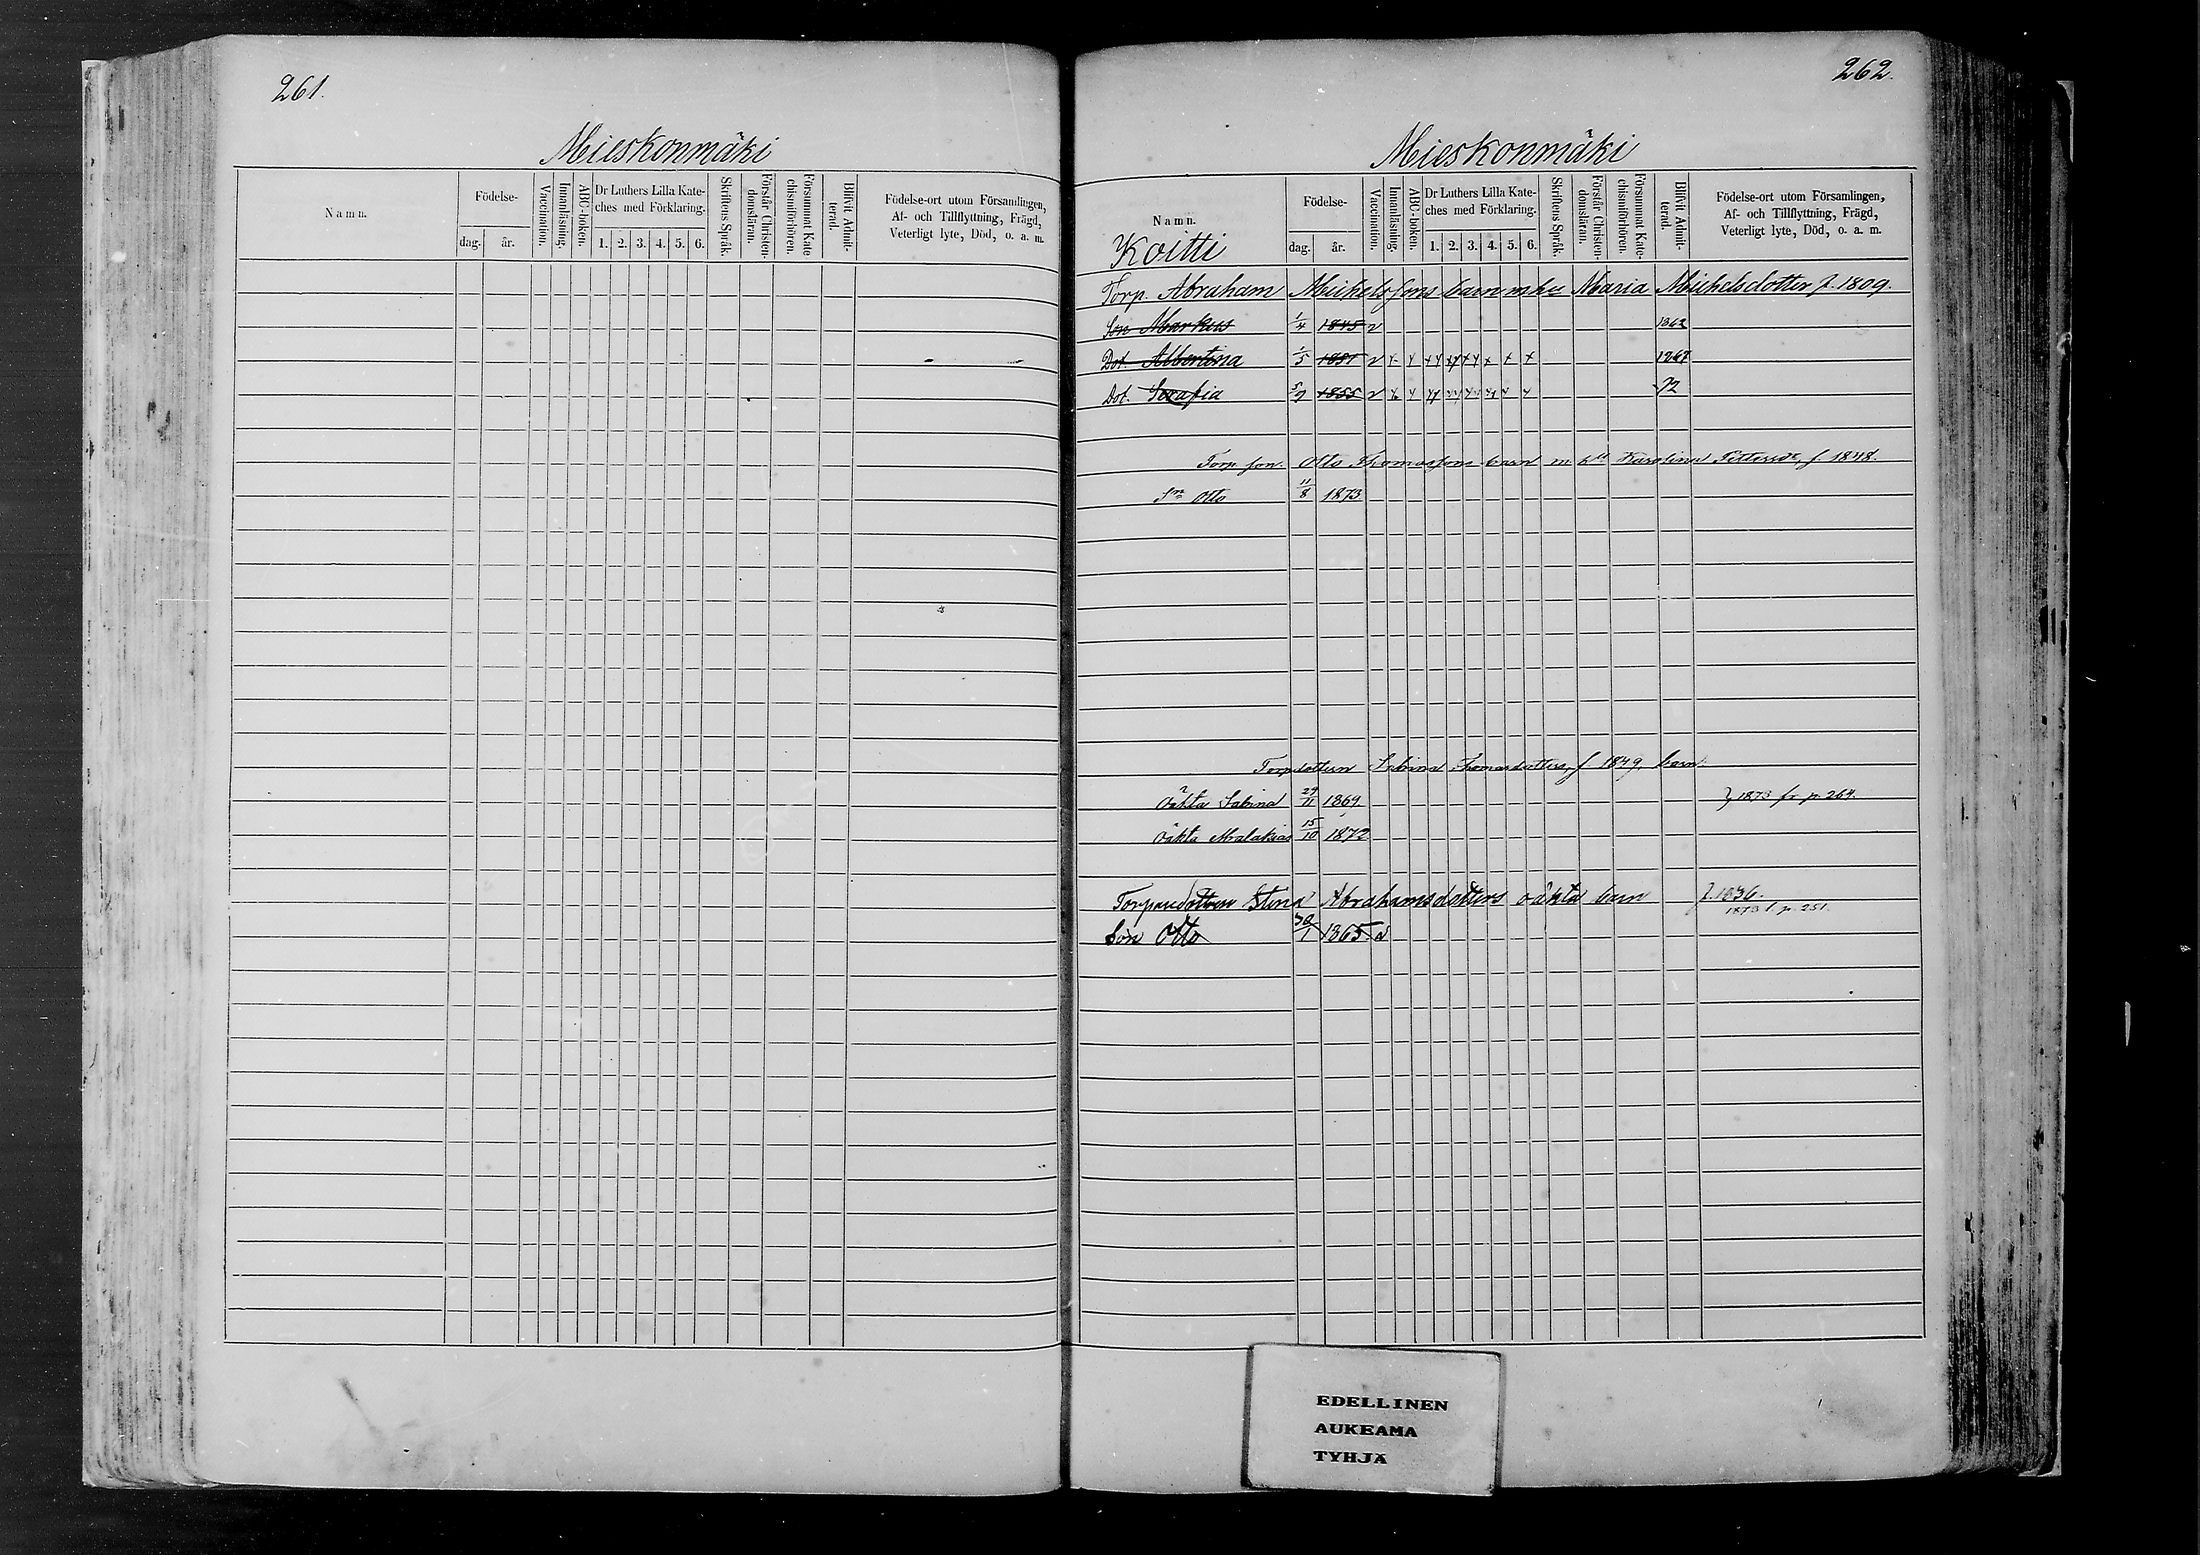 261.
Mieskonmäki
Namn.
Födelse-
dag. år.
Vaccination.
Innanläsning.
ABC-boken.
Dr Luthers Lilla Kate-
ches med Förklaring.
1. 2. 3. 4. 5. 6.
Skriftens Språk.
Förstår Christen-
domsläran.
Försummat Kate
chismiförhören.
Blifvit Admit-
terad.
Födelse-ort utom Församlingen,
Af- och Tillflyttning, Frägd,
Veterligt lyte, Död, o. a. m.
262.
Mieskonmäki
Namn.
Koitti
Födelse-
dag. år.
Vaccination.
Innanläsning.
ABC-boken.
Dr Luthers Lilla Kate-
ches med Förklaring.
1. 2. 3. 4. 5. 6.
Skriftens Språk.
Förstår Christen-
domsläran.
Försummat Kate-
chismiförhören.
Blifvit Admit-
terad.
Födelse-ort utom Församlingen,
Af- och Tillflyttning, Frägd,
Veterligt lyte, Död, o. a. m.
Torp. Abraham Michelssons barn m hu Maria Michelsdotter f. 1809.
Son Markus 1/4 1845 v 1862
Dot. Albertina 1/5 1851 v 1867
Dot. Serafia 5/9 1855 v 72
Torp son. Otto Thomassons barn m Karolina f. 1848.
Sn Otto 11/8 1873
Torpdottern Sabina Thomasdotters, f 1849, barn:
Oäkta Sabina 29/11 1869 1873 fr p. 264.
Oäkta Malakias 15/10 1872
Torparedottern Stina Abrahamsdotters oäkta barn f. 1836.
1873 t. p. 251.
Son Otto 30/1 1865. v
EDELLINEN
AUKEAMA
TYHJÄ